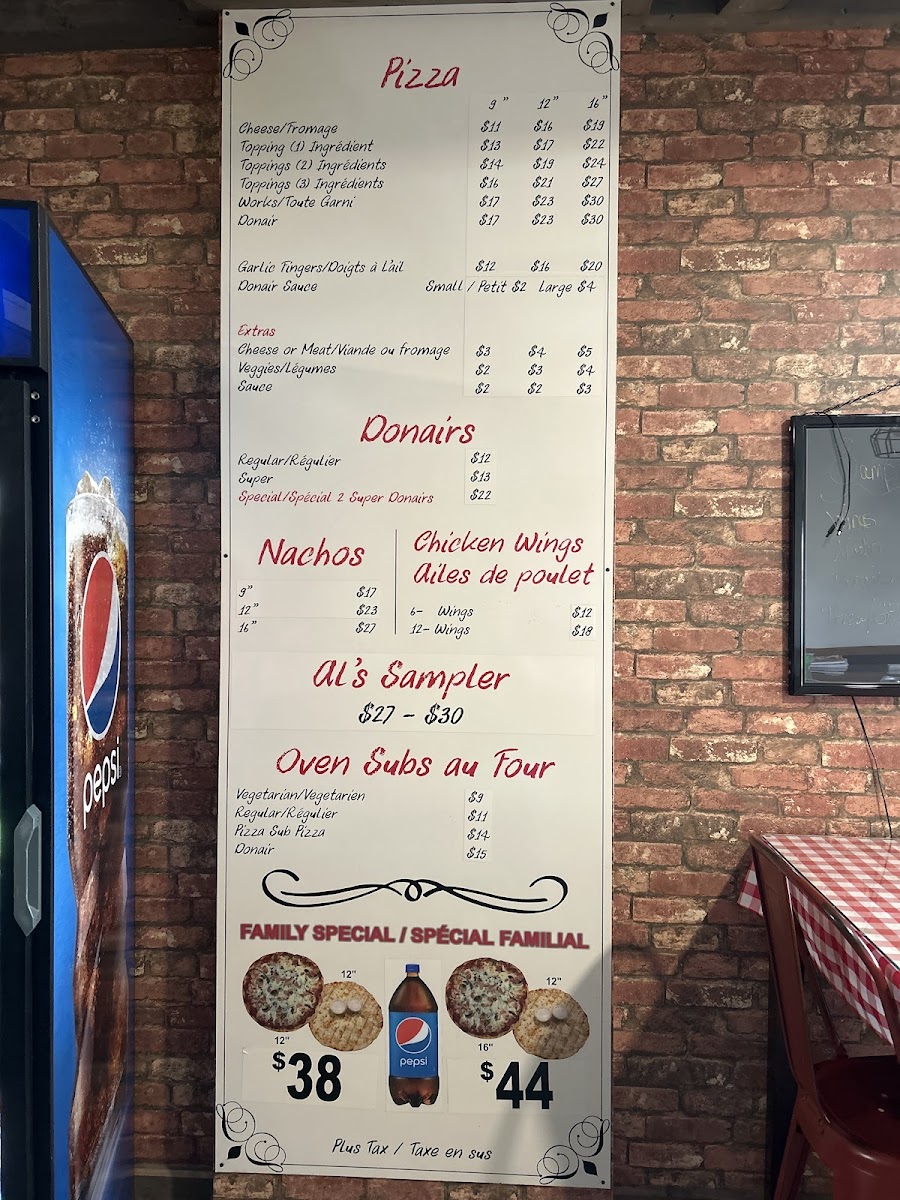 Pizza
9" 12" 16"
Cheese/Fromage $11 $16 $19
Topping (1) Ingrédient $13 $17 $22
Toppings (2) Ingrédients $14 $19 $24
Toppings (3) Ingrédients $16 $21 $27
Works/Toute Garni $17 $23 $30
Donair $17 $23 $30
Garlic Fingers/Doigts à L'ail $12 $16 $20
Donair Sauce Small / Petit $2 Large $4
Extras
Cheese or Meat/Viande ou fromage $3 $4 $5
Veggies/Légumes $2 $3 $4
Sauce $2 $2 $3
Donairs
Regular/Régulier $12
Super $13
Special/Spécial 2 Super Donairs $22
Nachos
9" $17
12" $23
16" $27
Chicken Wings
Ailes de poulet
6- Wings $12
12- Wings $18
Al's Sampler
$27 - $30
Oven Subs au Four
Vegetarian/Vegetarien $9
Regular/Régulier $11
Pizza Sub Pizza $14
Donair $15
FAMILY SPECIAL / SPÉCIAL FAMILIAL
12"
12"
$38
pepsi
12"
16"
$44
Plus Tax / Taxe en sus
pepsi